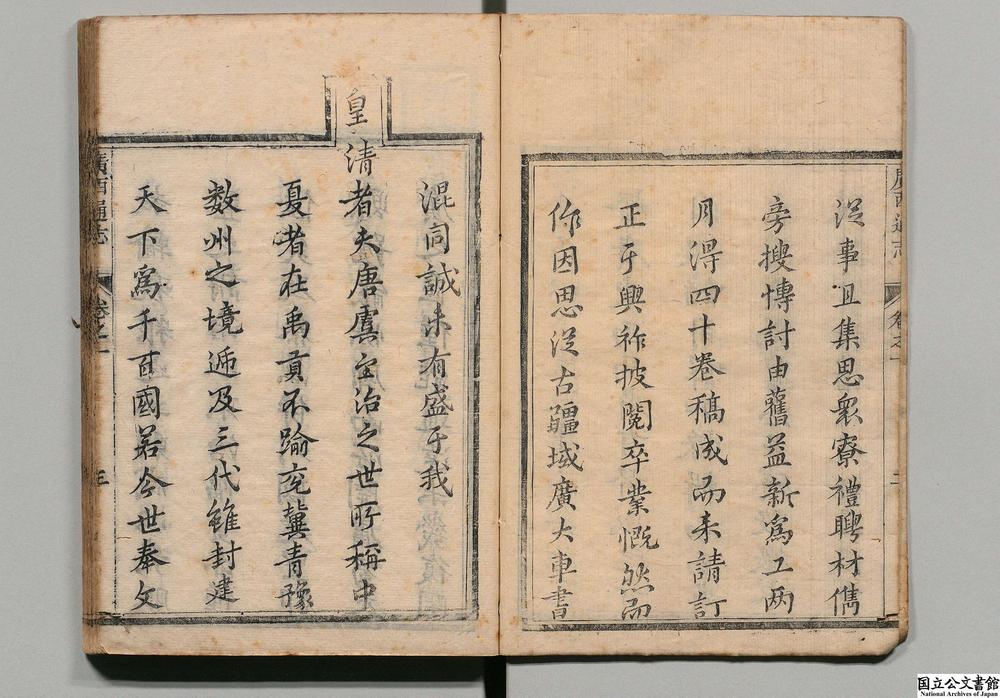 從事且集思眾寮禮聘材儁
旁搜愽討由舊益新為工兩
月得四十卷稿成而来請訂
正于興祚披閱卒業慨然而
作因思從古疆域廣大車書
混同誠未有盛于我
皇清者夫唐虞至治之世所稱中
夏者在禹貢不踰兖冀青豫
数州之境逓及三代雖封建
天下為千百國若今世奉文
廣西通志
卷之一
三
國立公文書館
National Archives of Japan